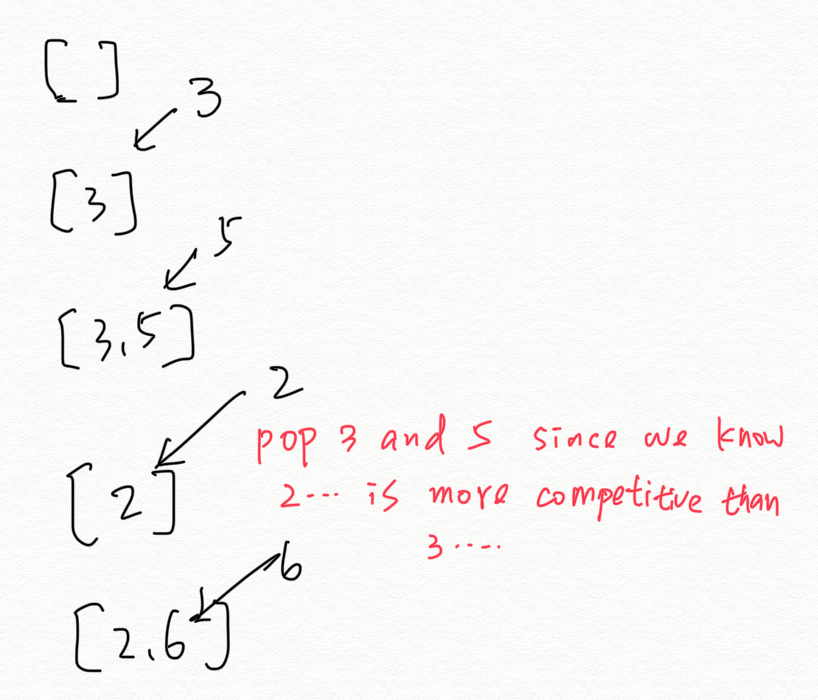 [ ]
3
[3]
5
[3,5]
2
pop 3 and 5 since we know
[2] 2... is more competitive than
3....
6
[2,6]